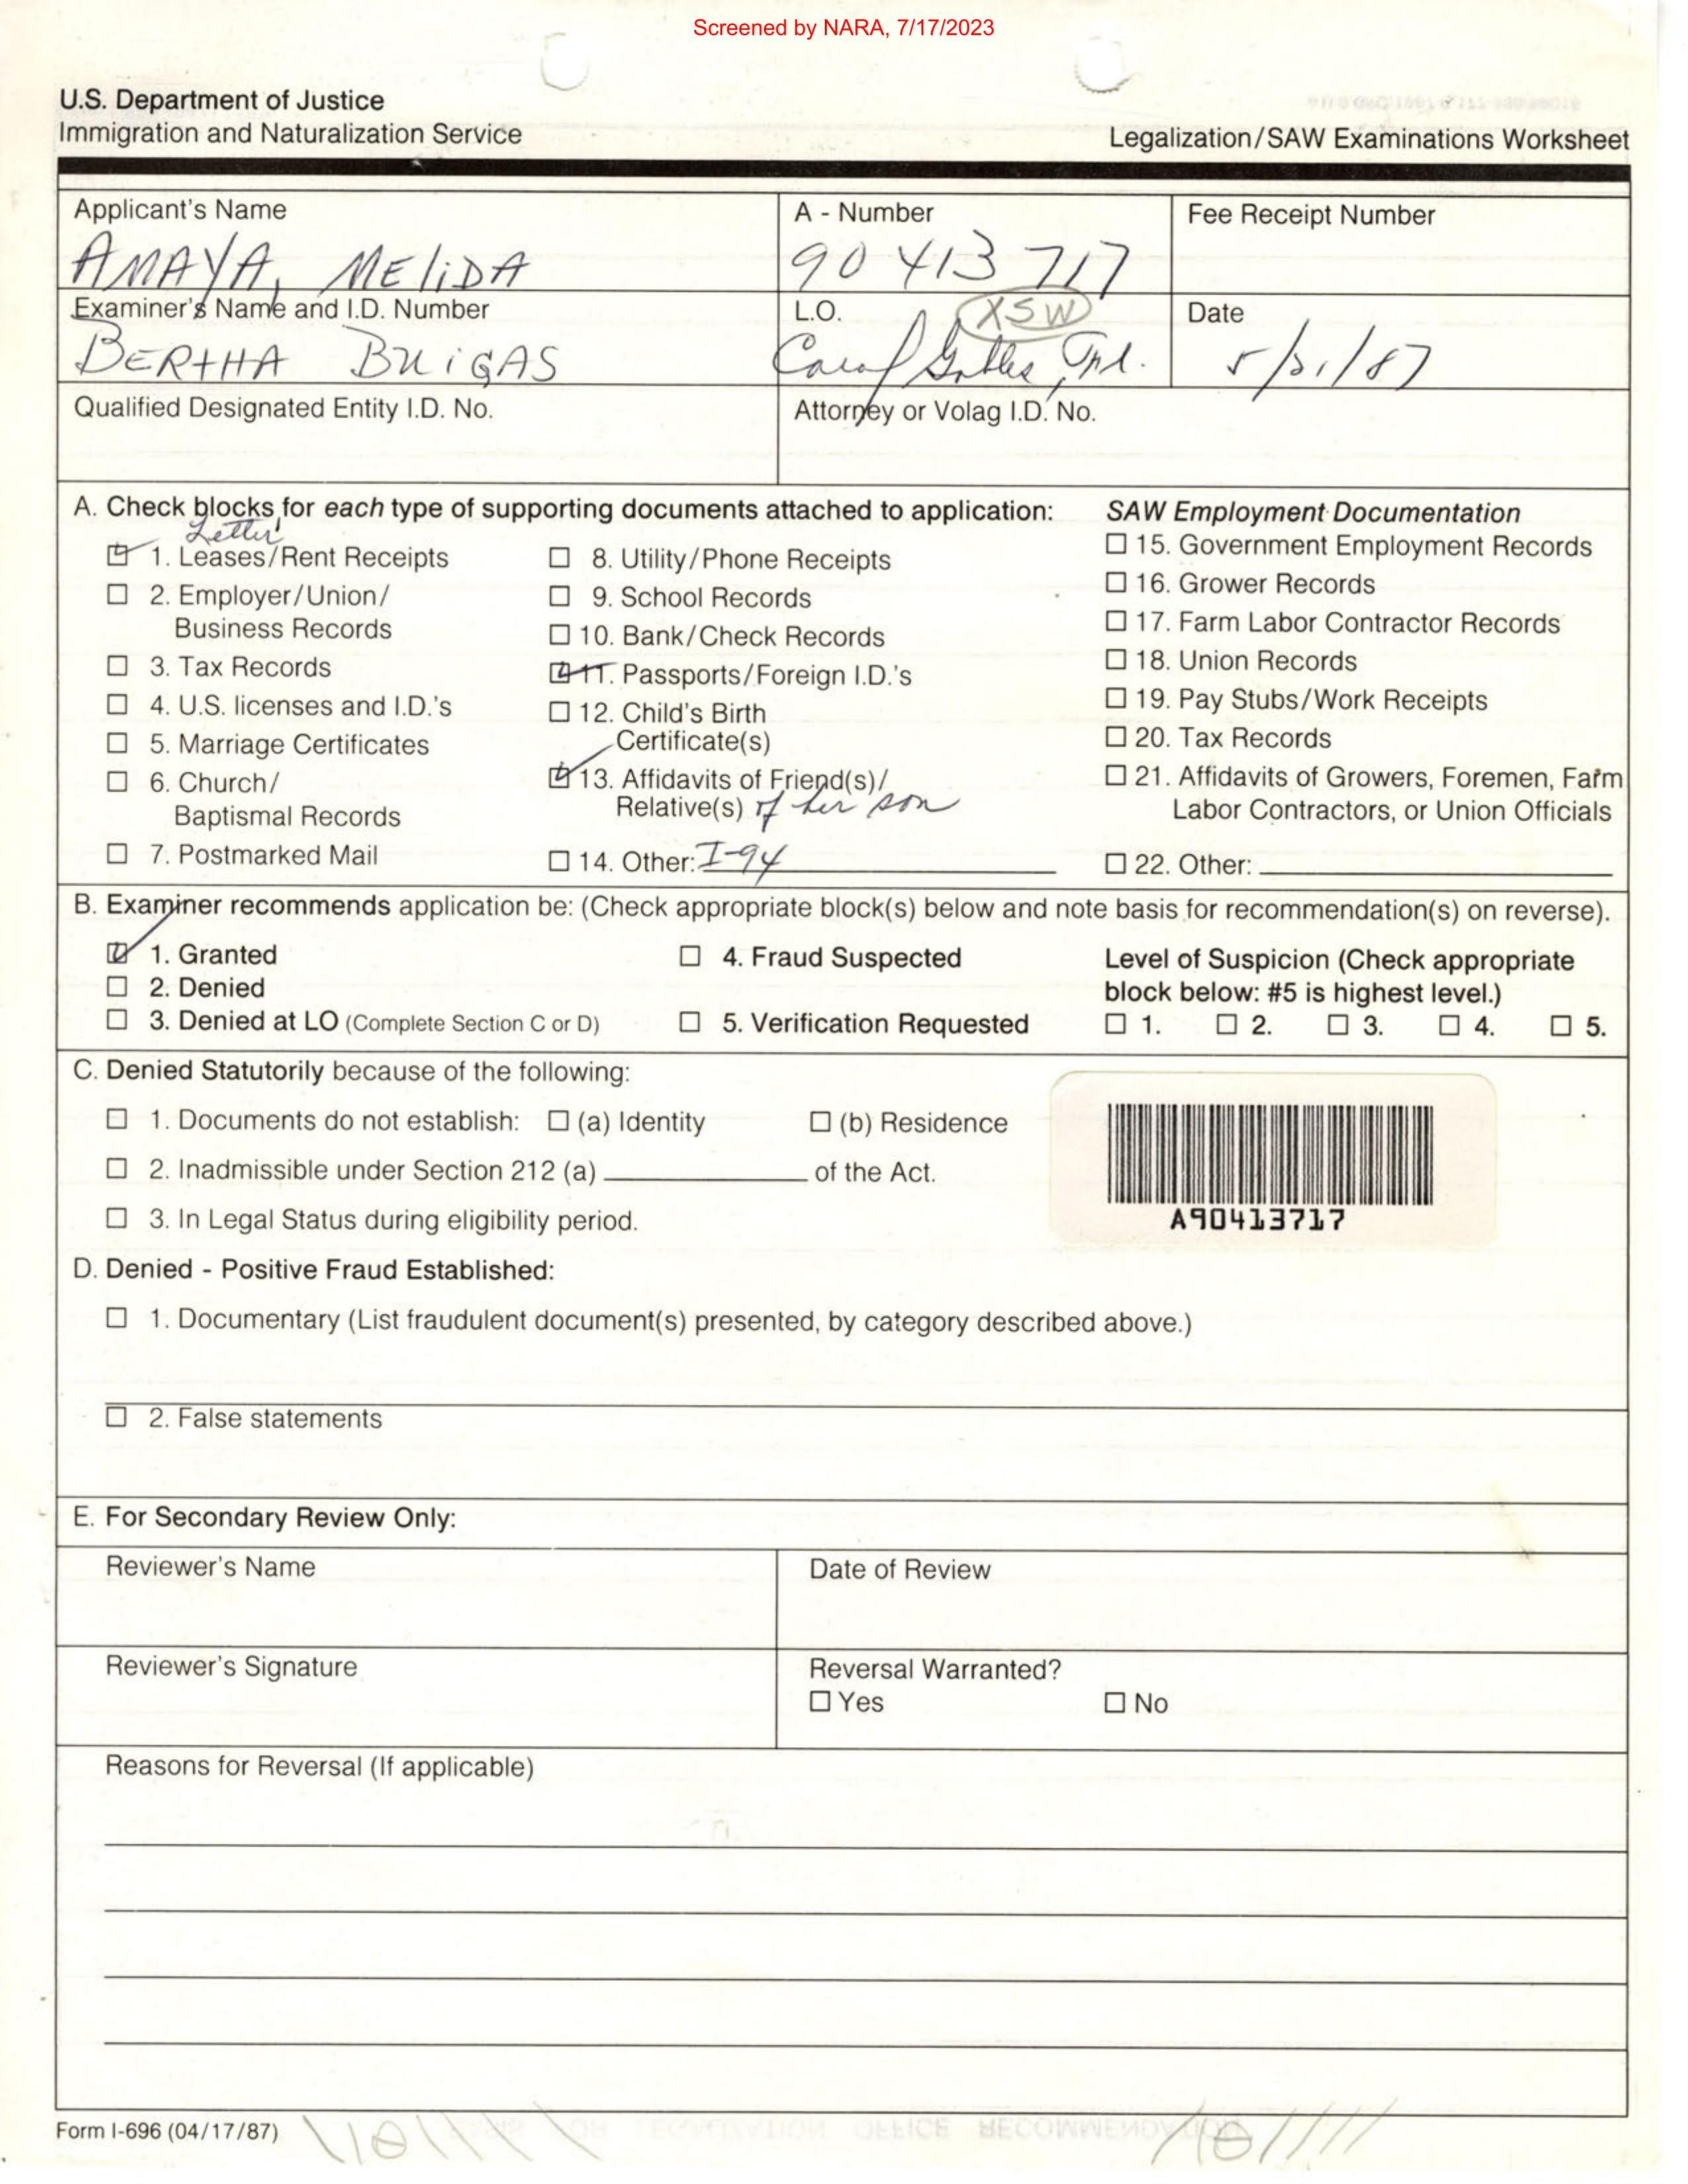 Screened by NARA, 7/17/2023
U.S. Department of Justice
Immigration and Naturalization Service
Legalization/SAW Examinations Worksheet
Applicant's Name
AMAYA, MELIDA
A - Number
90 413 717
Fee Receipt Number
Examiner's Name and I.D. Number
BERTHA
L.O.
XSW
Carol
Date
5/21/87
Qualified Designated Entity I.D. No.
Attorney or Volag I.D. No.
A. Check blocks for each type of supporting documents attached to application:
Letter
1. Leases/Rent Receipts
2. Employer/Union/
Business Records
3. Tax Records
4. U.S. licenses and I.D.'s
5. Marriage Certificates
6. Church/
Baptismal Records
7. Postmarked Mail
8. Utility/Phone Receipts
9. School Records
10. Bank/Check Records
11. Passports/Foreign I.D.'s
12. Child's Birth
Certificate(s)
13. Affidavits of Friend(s)/
Relative(s) of her son
14. Other: I-94
SAW Employment Documentation
15. Government Employment Records
16. Grower Records
17. Farm Labor Contractor Records
18. Union Records
19. Pay Stubs/Work Receipts
20. Tax Records
21. Affidavits of Growers, Foremen, Farm
Labor Contractors, or Union Officials
22. Other:
B. Examiner recommends application be: (Check appropriate block(s) below and note basis for recommendation(s) on reverse).
1. Granted
2. Denied
3. Denied at LO (Complete Section C or D)
4. Fraud Suspected
5. Verification Requested
Level of Suspicion (Check appropriate
block below: #5 is highest level.)
1. 2. 3. 4. 5.
C. Denied Statutorily because of the following:
1. Documents do not establish: (a) Identity (b) Residence
2. Inadmissible under Section 212 (a) of the Act.
3. In Legal Status during eligibility period.
A90413717
D. Denied - Positive Fraud Established:
1. Documentary (List fraudulent document(s) presented, by category described above.)
2. False statements
E. For Secondary Review Only:
Reviewer's Name
Date of Review
Reviewer's Signature
Reversal Warranted?
Yes No
Reasons for Reversal (If applicable)
Form I-696 (04/17/87)